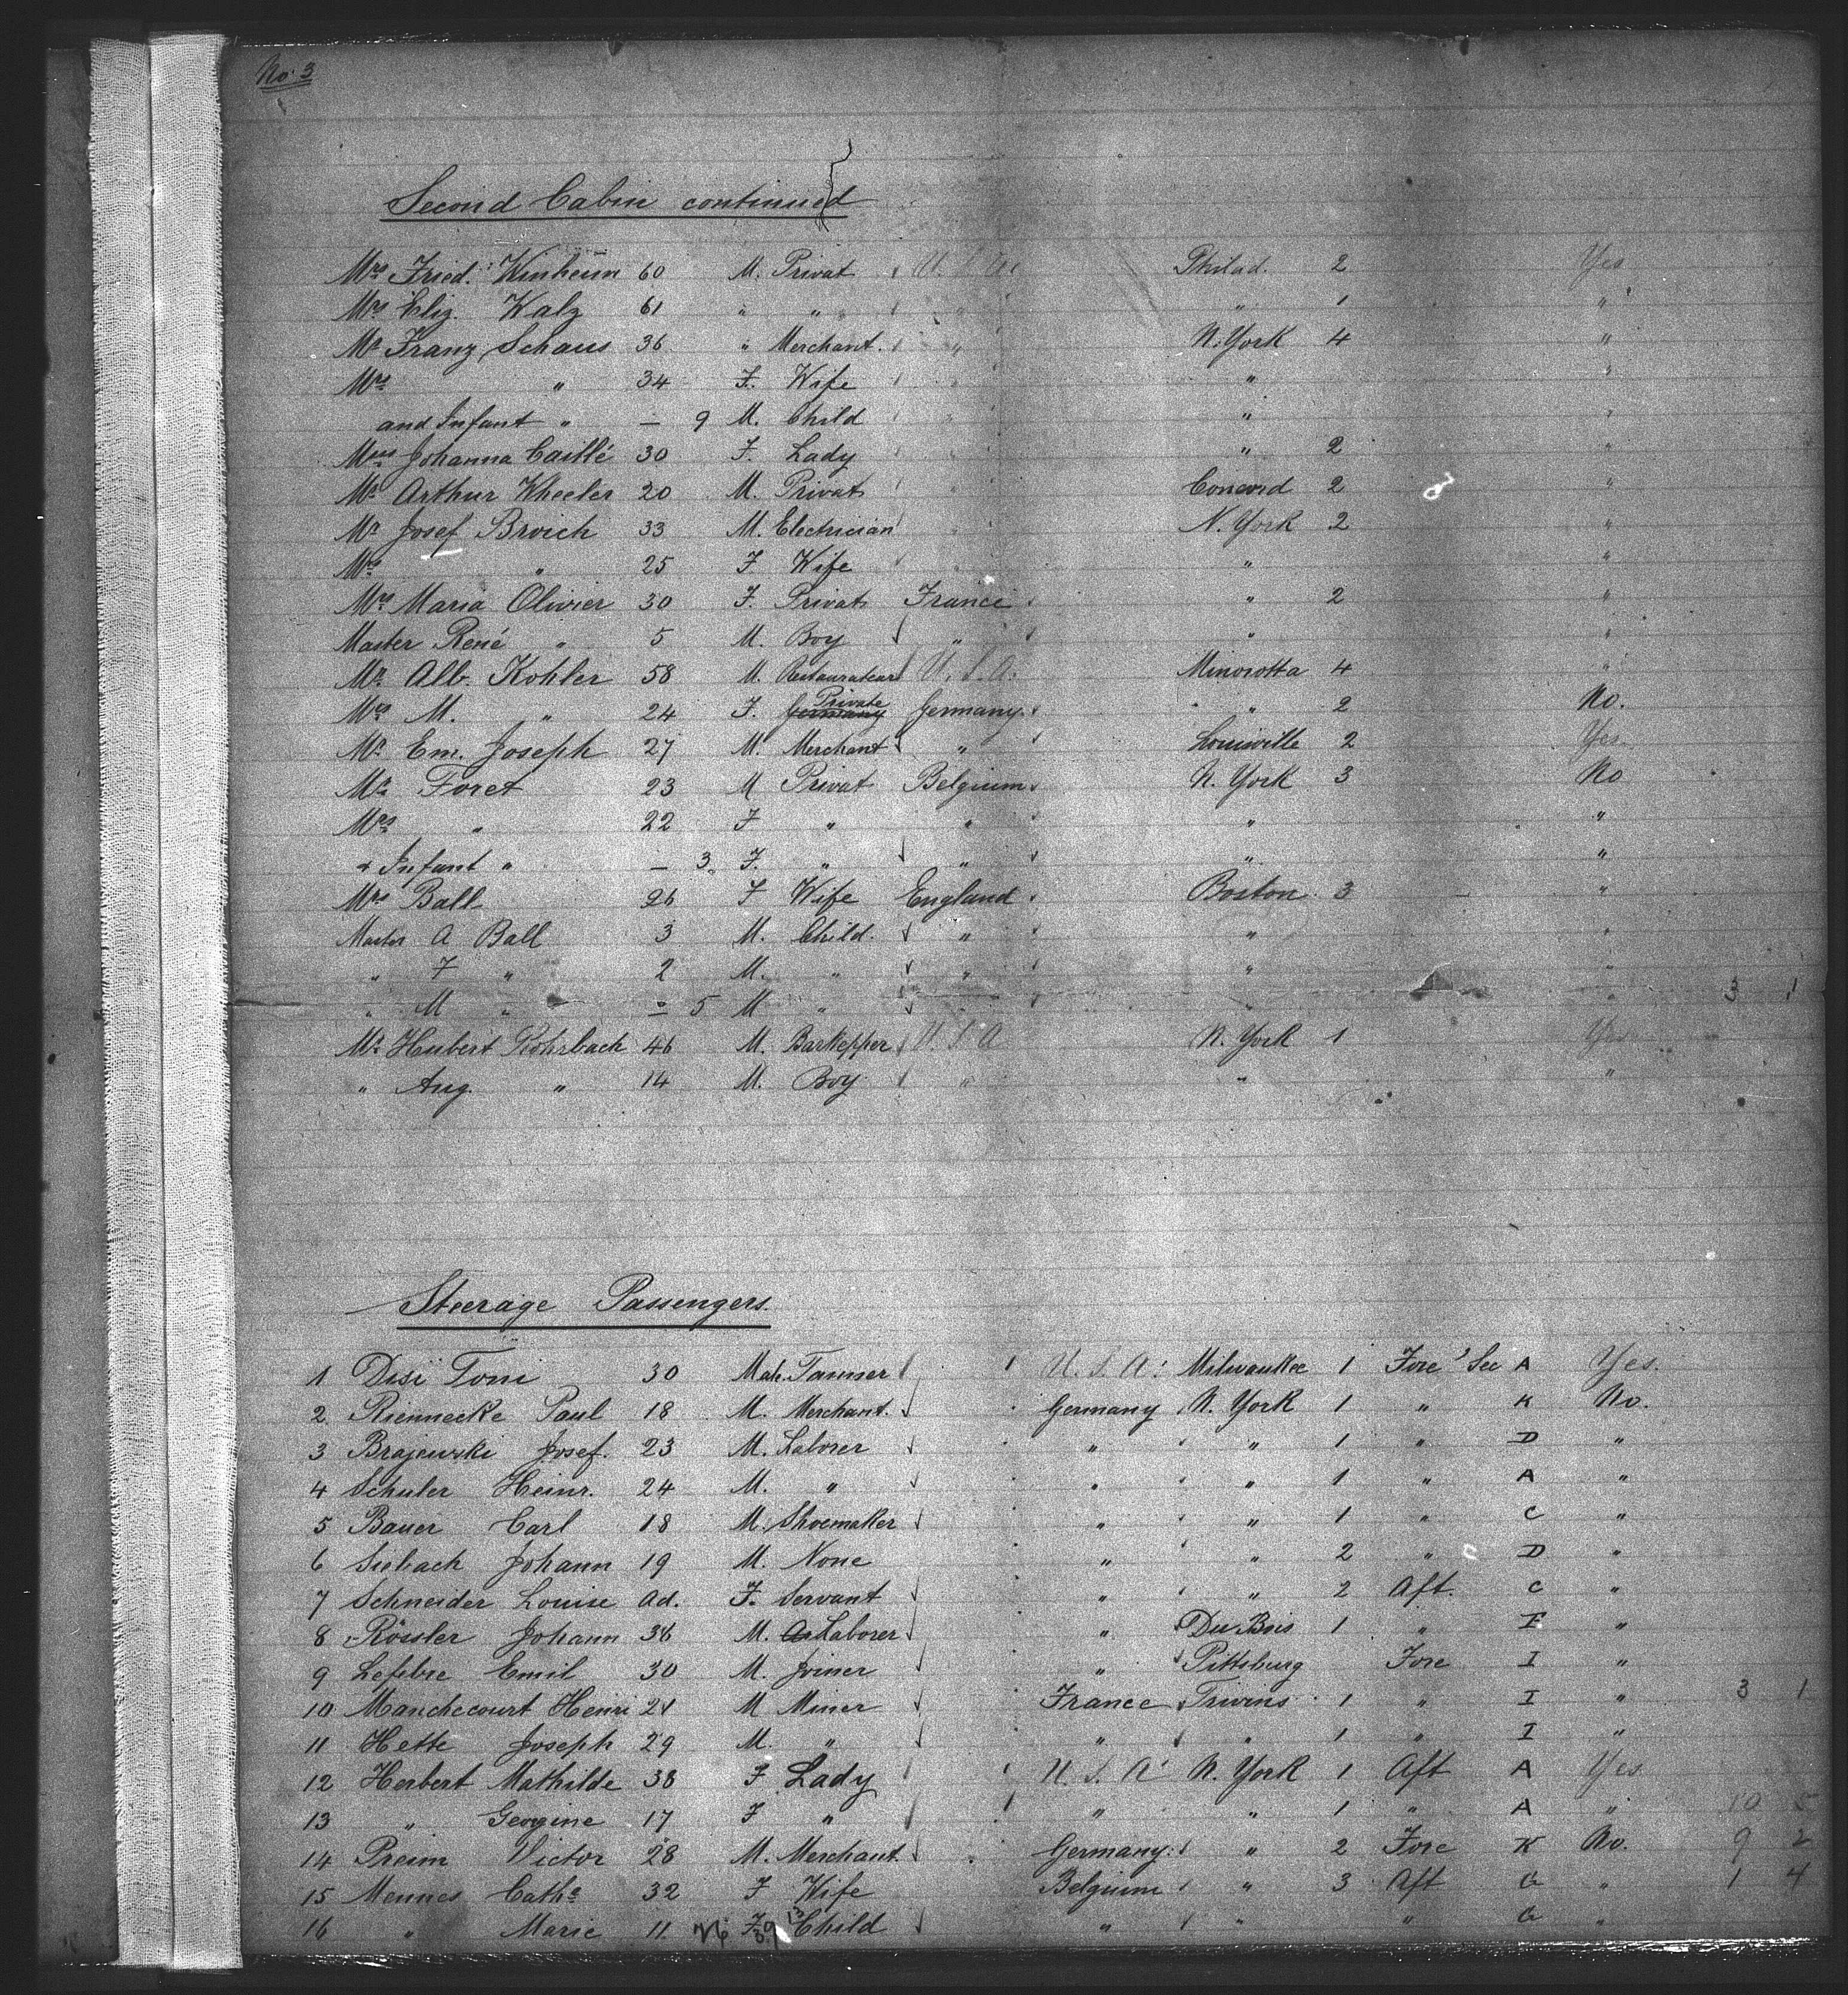 No. 3
Second Cabin continued
Mrs Fried. Winheim 60 M. Privat U.S.A. Philad. 2 Yes
Mrs Eliz. Walz 61 " " " " 1 "
Mr Franz Schaus 36 " Merchant. " N. York 4 "
Mrs " 34 F. Wife " " "
and Infant " — 9 M. Child " " "
Mrs Johanna Caillé 30 F. Lady " " 2 "
Mr Arthur Wheeler 20 M. Privat " Concord 2 "
Mr Josef Broich 33 M. Electrician " N. York 2 "
Mrs " 25 F Wife " " "
Mrs Maria Olivier 30 F. Privat France " 2 "
Master René " 5 M. Boy " " "
Mr Alb. Kohler 58 M. Restaurateur U.S.A. Minosotta 4 "
Mrs M. " 24 F. Private Germany. " 2 No.
Mr Em. Joseph 27 M. Merchant " Louisville 2 Yes.
Mr Foret 23 M Privat Belgium N. York 3 No
Mrs " 22 F " " " "
& Infant " — 3 F. " " " "
Mrs Ball 26 F Wife England Boston 3 "
Master A Ball 3 M. Child. " " "
" F " 2 M. " " " "
" M " — 5 M " " " " 3 1
Mr Hubert Rohrbach 46 M. Barkepper U.S.A N. York 1 Yes
" Aug. " 14 M. Boy " " "
Steerage Passengers.
1 Disi Toni 30 Mah. Tanner U.S.A. Milwaukee 1 Fore Sec A Yes.
2 Riennecke Paul 18 M. Merchant. Germany N. York 1 " K No.
3 Brajewski Josef. 23 M. Laborer " " 1 " D "
4 Schuler Heinr. 24 M. " " " 1 " A "
5 Bauer Carl 18 M. Shoemaker " " 1 " C "
6 Siebach Johann 19 M. None " " 2 " D "
7 Schneider Louise Ad. F. Servant " " 2 Aft. C "
8 Rössler Johann 36 M. Laborer " Du Bois 1 " E "
9 Lefebre Emil 30 M. Joiner " Pittsburg Fore I "
10 Manchecourt Henri 24 M Miner France Trivens 1 " I " 3 1
11 Hette Joseph 29 M. " " " 1 " I "
12 Herbert Mathilde 38 F Lady U.S.A. N. York 1 Aft A Yes
13 " Georgine 17 F " " " 1 " A " 10 5
14 Preim Victor 28 M. Merchant. Germany. " 2 Fore K No. 9 2
15 Mennes Cathe 32 F Wife Belgium " 3 Aft G " 1 4
16 " Marie 11 F. Child " " " G "